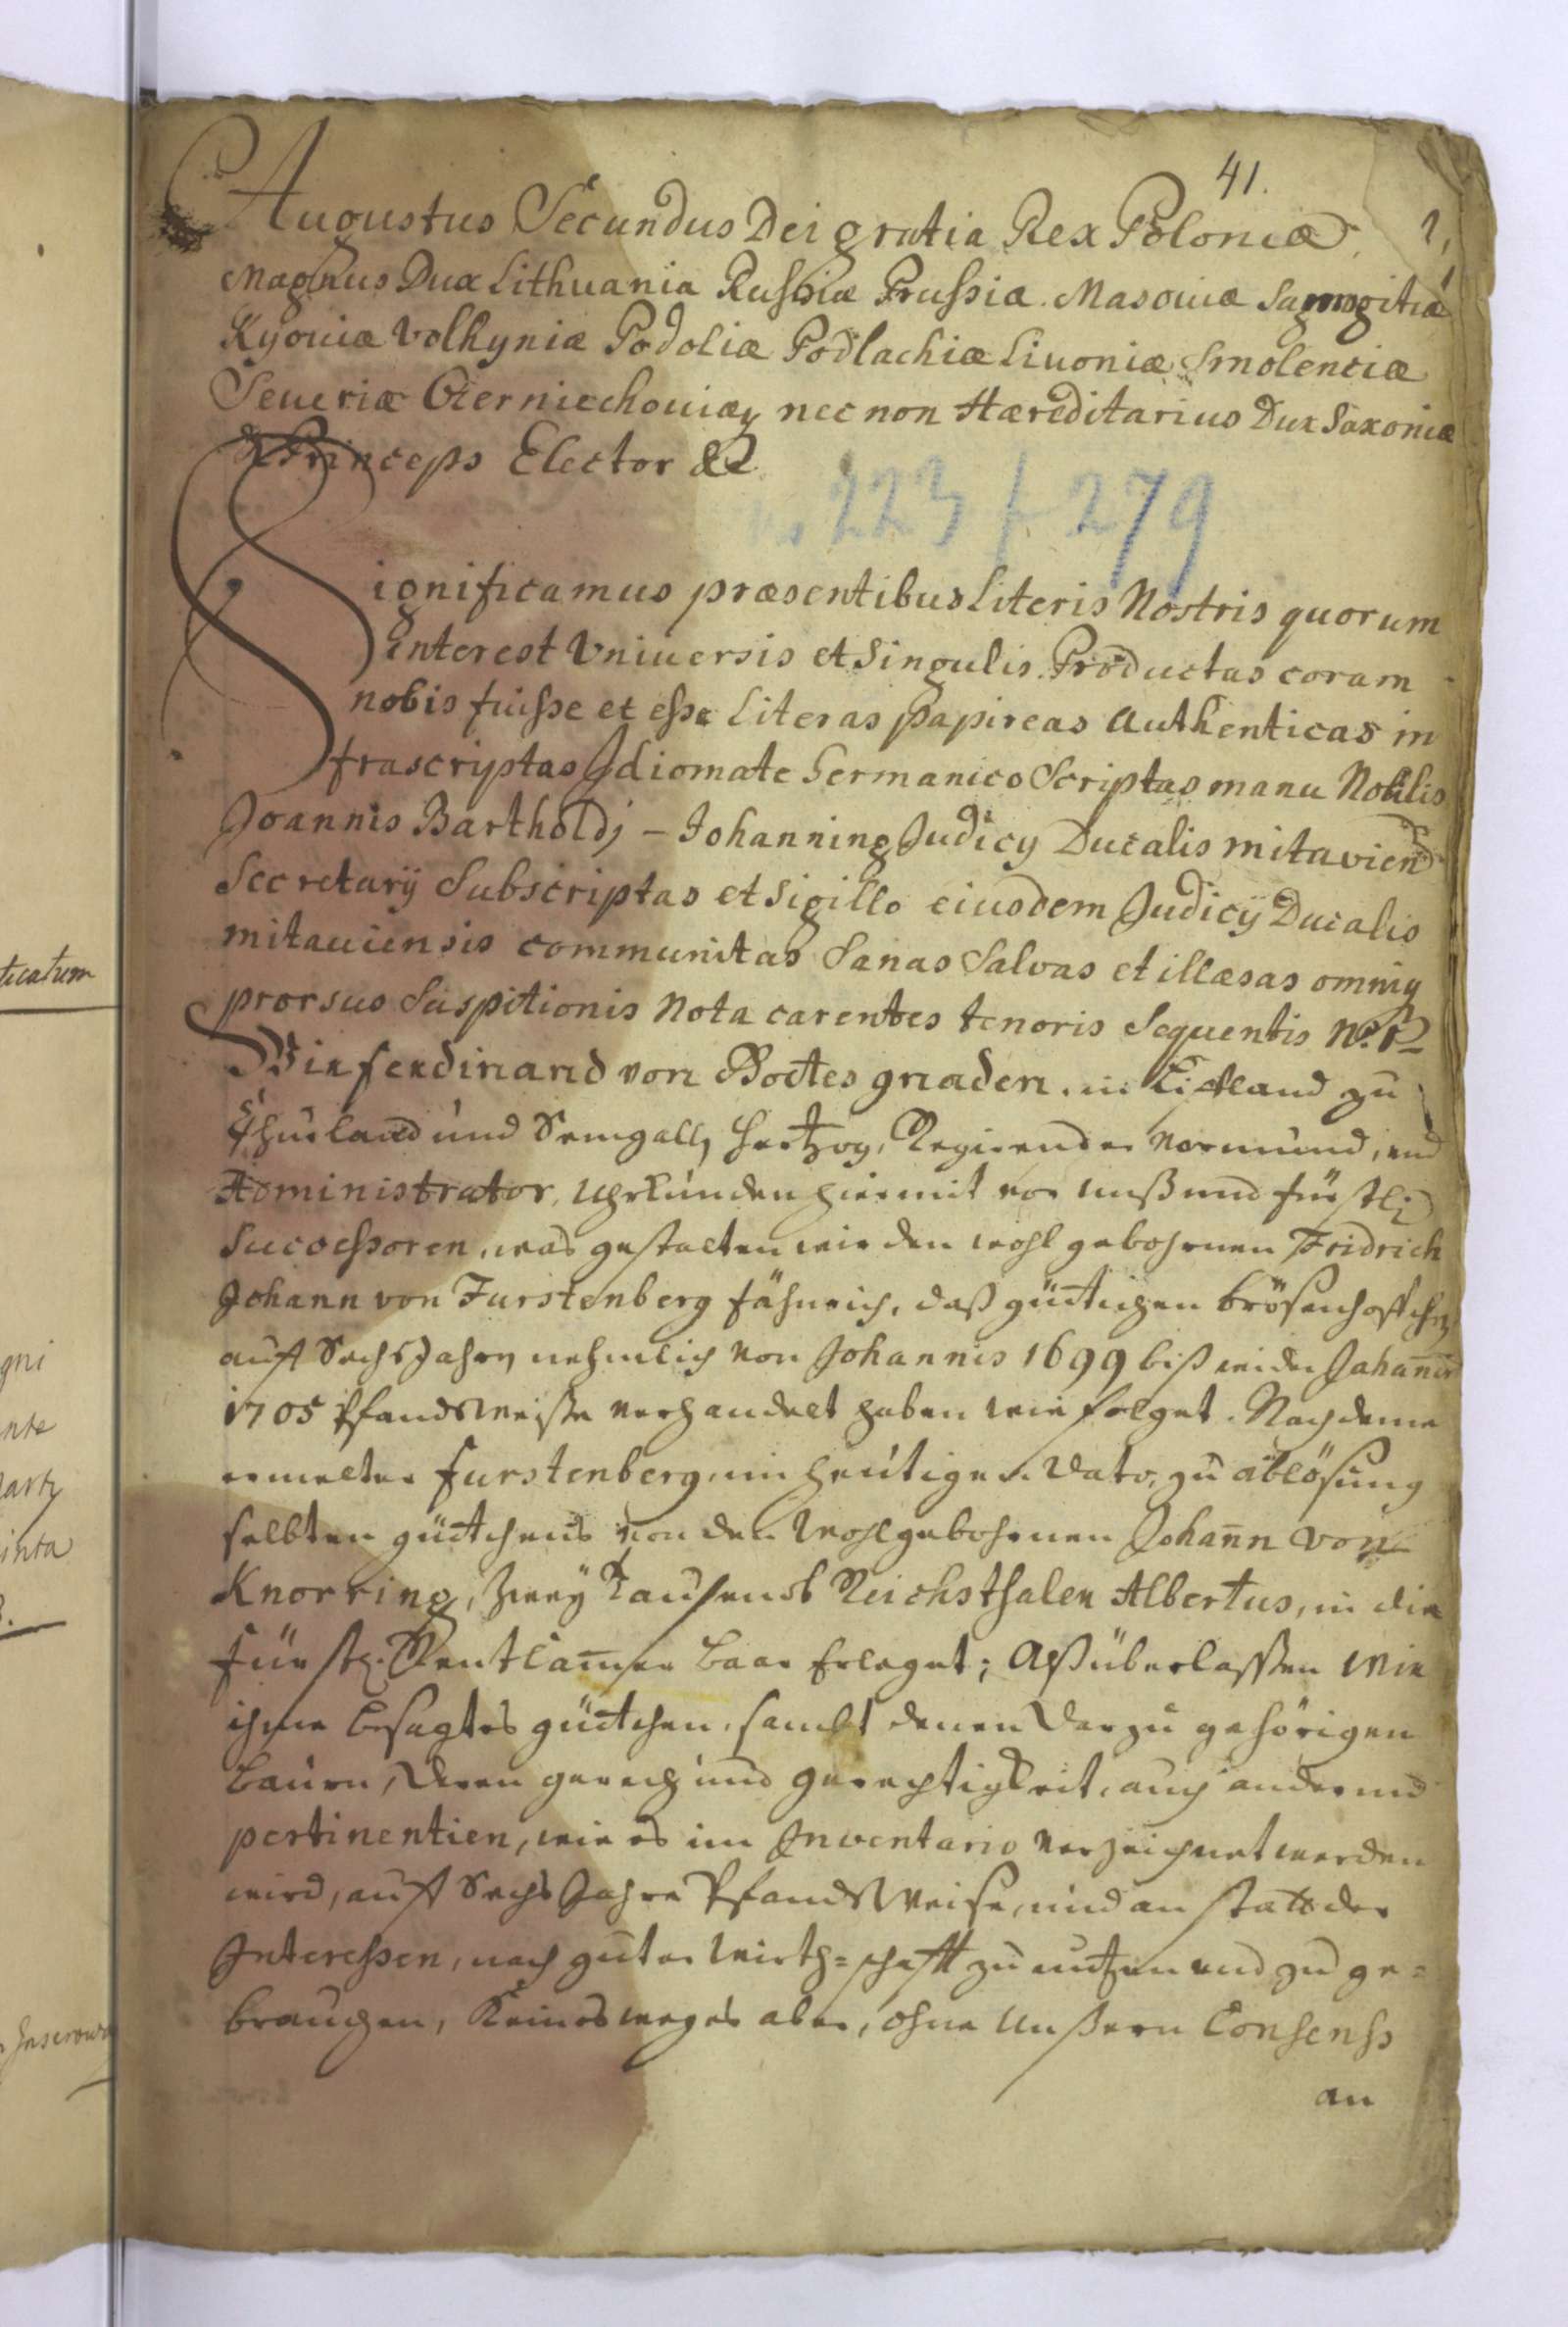 41.
Augustus Secundus Dei gratia Rex Poloniæ
Magnus Dux Lithuania Russiæ Prussiæ Masouiæ Samogitiæ
Kyouiæ Volhyniæ Podoliæ Podlachiæ Liuoniæ Smolenciæ
Seueriæ Czerniechouiæq nec non Hæreditarius Dux Saxoniæ
& Princeps Elector &c
223 f 279
Significamus præsentibus Literis Nostris quorum
interest Vniuersis et Singulis. Productas coram
nobis fuisse et esse Literas papireas Authenticas in
frascriptas Idiomate Germanico Scriptas manu Nobilis
Joannis Bartholdj – Johanning Judicy Ducalis mitavien
Secretarij Subscriptas et Sigillo eiusdem Judicij Ducalis
mitauiensis communitas Sanas Salvas et illæsas omniq
prorsus Suspitionis Nota carentes tenoris Sequentis
Wir Ferdinand von Gottes gnaden. in Lieffland zu
Churland und Semgalln Hertzog, Regirender Vormund, und
Administrator, Uhrkunden hiermit vor unß und fürstl
Successoren, was gestalten wir den wohl gebohrnen Fridrich
Johann von Furstenberg Fähnrich, daß güttchen Brösenhoffchen
auff Sechs Jahren nehmlich von Johannis 1699 biß wider Johannis
1705 Pfandsweise verhandelt haben wie folget. Nachdeme
ermelter Furstenberg, im heutigen Dato, zu ablösung
selbten güttchens von den Wohlgebohrnen Johann von
Knorring, Zwey Tausend Reichsthaler Albertus, in die
Fürstl. Rentkammer baar Erleget; Alß überlassen Wir
ihme besagtes güttchen, sambt denen darzu gehörigen
Bauren, deren gerech und gerechtigkeit, auch anderen
pertinentien, wie es im Inventario verzeichnet werden
wird, auff Sechs Jahre Pfandsweise, und an statt der
Interessen, nach guter Wirth=schafft zu nutzen und zu ge=
brauchen, Keinesweges aber, ohne Unßern Consenss
an